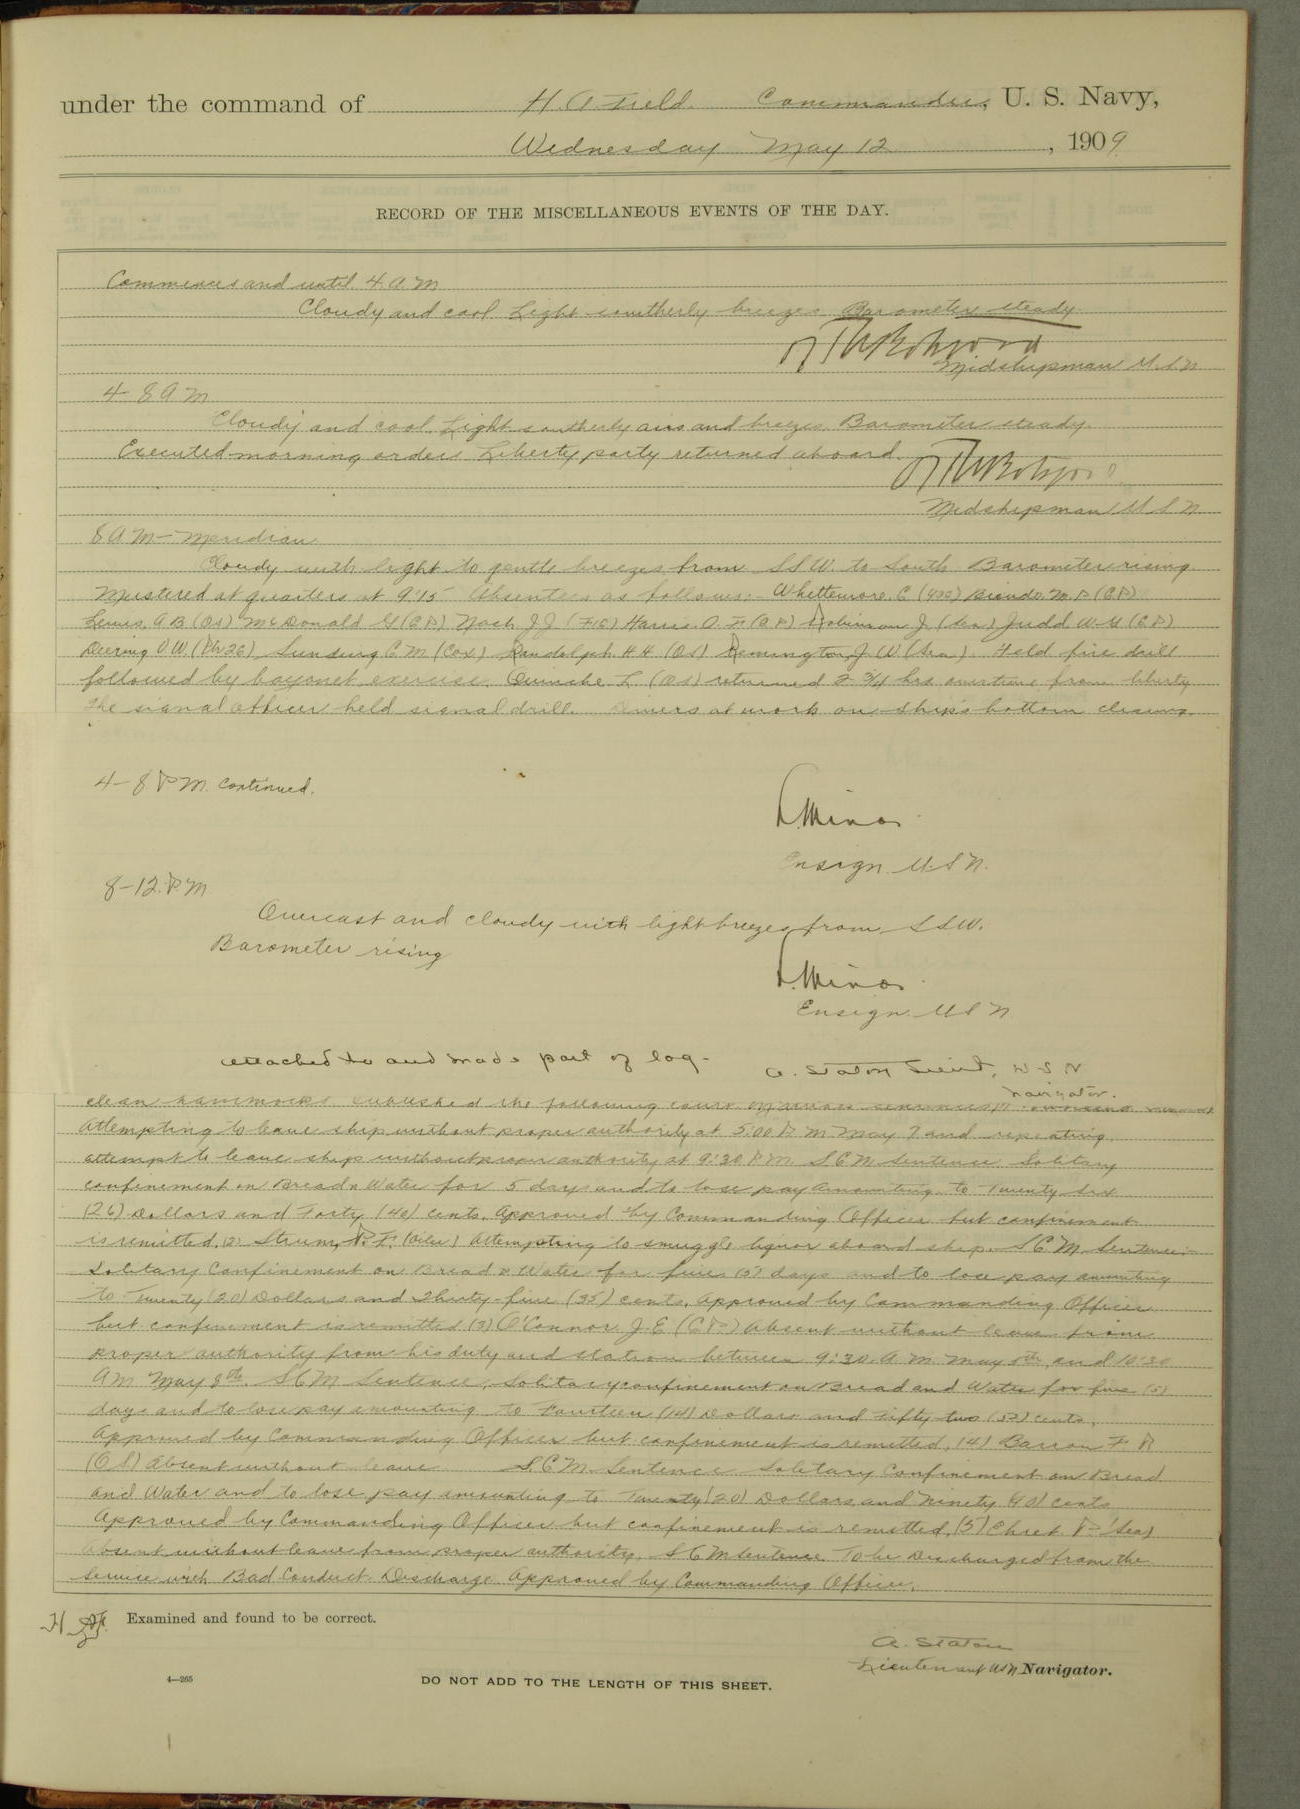 under the command of H. A. Field. Commander, U. S. Navy,
Wednesday May 12, 1909
RECORD OF THE MISCELLANEOUS EVENTS OF THE DAY.
Commences and until 4. A. M
Cloudy and cool Light southerly breezes Barometer steady
Midshipman U. S. N
4-8 A M
Cloudy and cool. Light southerly airs and breezes. Barometer steady.
Executed morning orders Liberty party returned aboard.
Midshipman U S N
8 A M - Meridian
Cloudy with light to gentle breezes from SSW. to South Barometer rising
Mustered at quarters at 9:15 Absentees as follows:- Whittemore. C M. P (C.P.)
Lewis. A B (OS) McDonald G (C.P.) Nash J J Harris. O. F (C.P.) Robinson J. (Sea) Judd W. G (C P)
Deering V W C M (Cox) Randolph H H (OS) Remington J W (Sea). Held fire drill
followed by bayonet exercise. Quinche L (OS) returned 2 3/4 hrs overtime from liberty
The signal officer held signal drill. at work on ship's bottom
4-8 P M. continued.
L. Minor
Ensign U. S. N.
8-12. P. M
Overcast and cloudy with light breezes from SSW.
Barometer rising
L. Minor
Ensign. U S N
attached to and made part of log-
A. Staton Lieut, U S N
Navigator.
clean hammocks Published the following court
Attempting to leave ship without proper authority at 5:00 P M May 7 and repeating
attempt to leave ship without proper authority at 9:30 P.M. S C M Sentence Solitary
confinement on Bread & Water for 5 days and to lose pay amounting to Twenty six
(26) Dollars and Forty (40) cents. Approved by Commanding Officer but confinement
is remitted. (2) Strum, P. F. (Oiler) Attempting to smuggle liquor aboard ship. S C M Sentence:-
Solitary Confinement on Bread & Water for five (5) days and to lose pay amounting
to Twenty (20) Dollars and Thirty-five (35) cents. Approved by Commanding Officer
but confinement is remitted (3) O'Connor J. E (C P.) Absent without leave from
proper authority from his duty and station between 9:30. A. M. May 5th and 10:30
AM May 8th. S C M Sentence, Solitary confinement on Bread and Water for five (5)
days and to lose pay amounting to Fourteen (14) Dollars and Fifty two (52) cents.
Approved by Commanding Officer but confinement is remitted. (4) Barron F R
(O S) Absent without leave S. C M. Sentence Solitary Confinement on Bread
and Water and to lose pay amounting to Twenty (20) Dollars and Ninety (90) cents
Approved by Commanding Officer but confinement is remitted. (5) Ehret P (Sea)
Absent without leave from proper authority. S C M sentence To be Discharged from the
service with Bad Conduct Discharge Approved by Commanding Officer.
Examined and found to be correct.
A. Staton
Lieutenant USN Navigator.
4—265
DO NOT ADD TO THE LENGTH OF THIS SHEET.